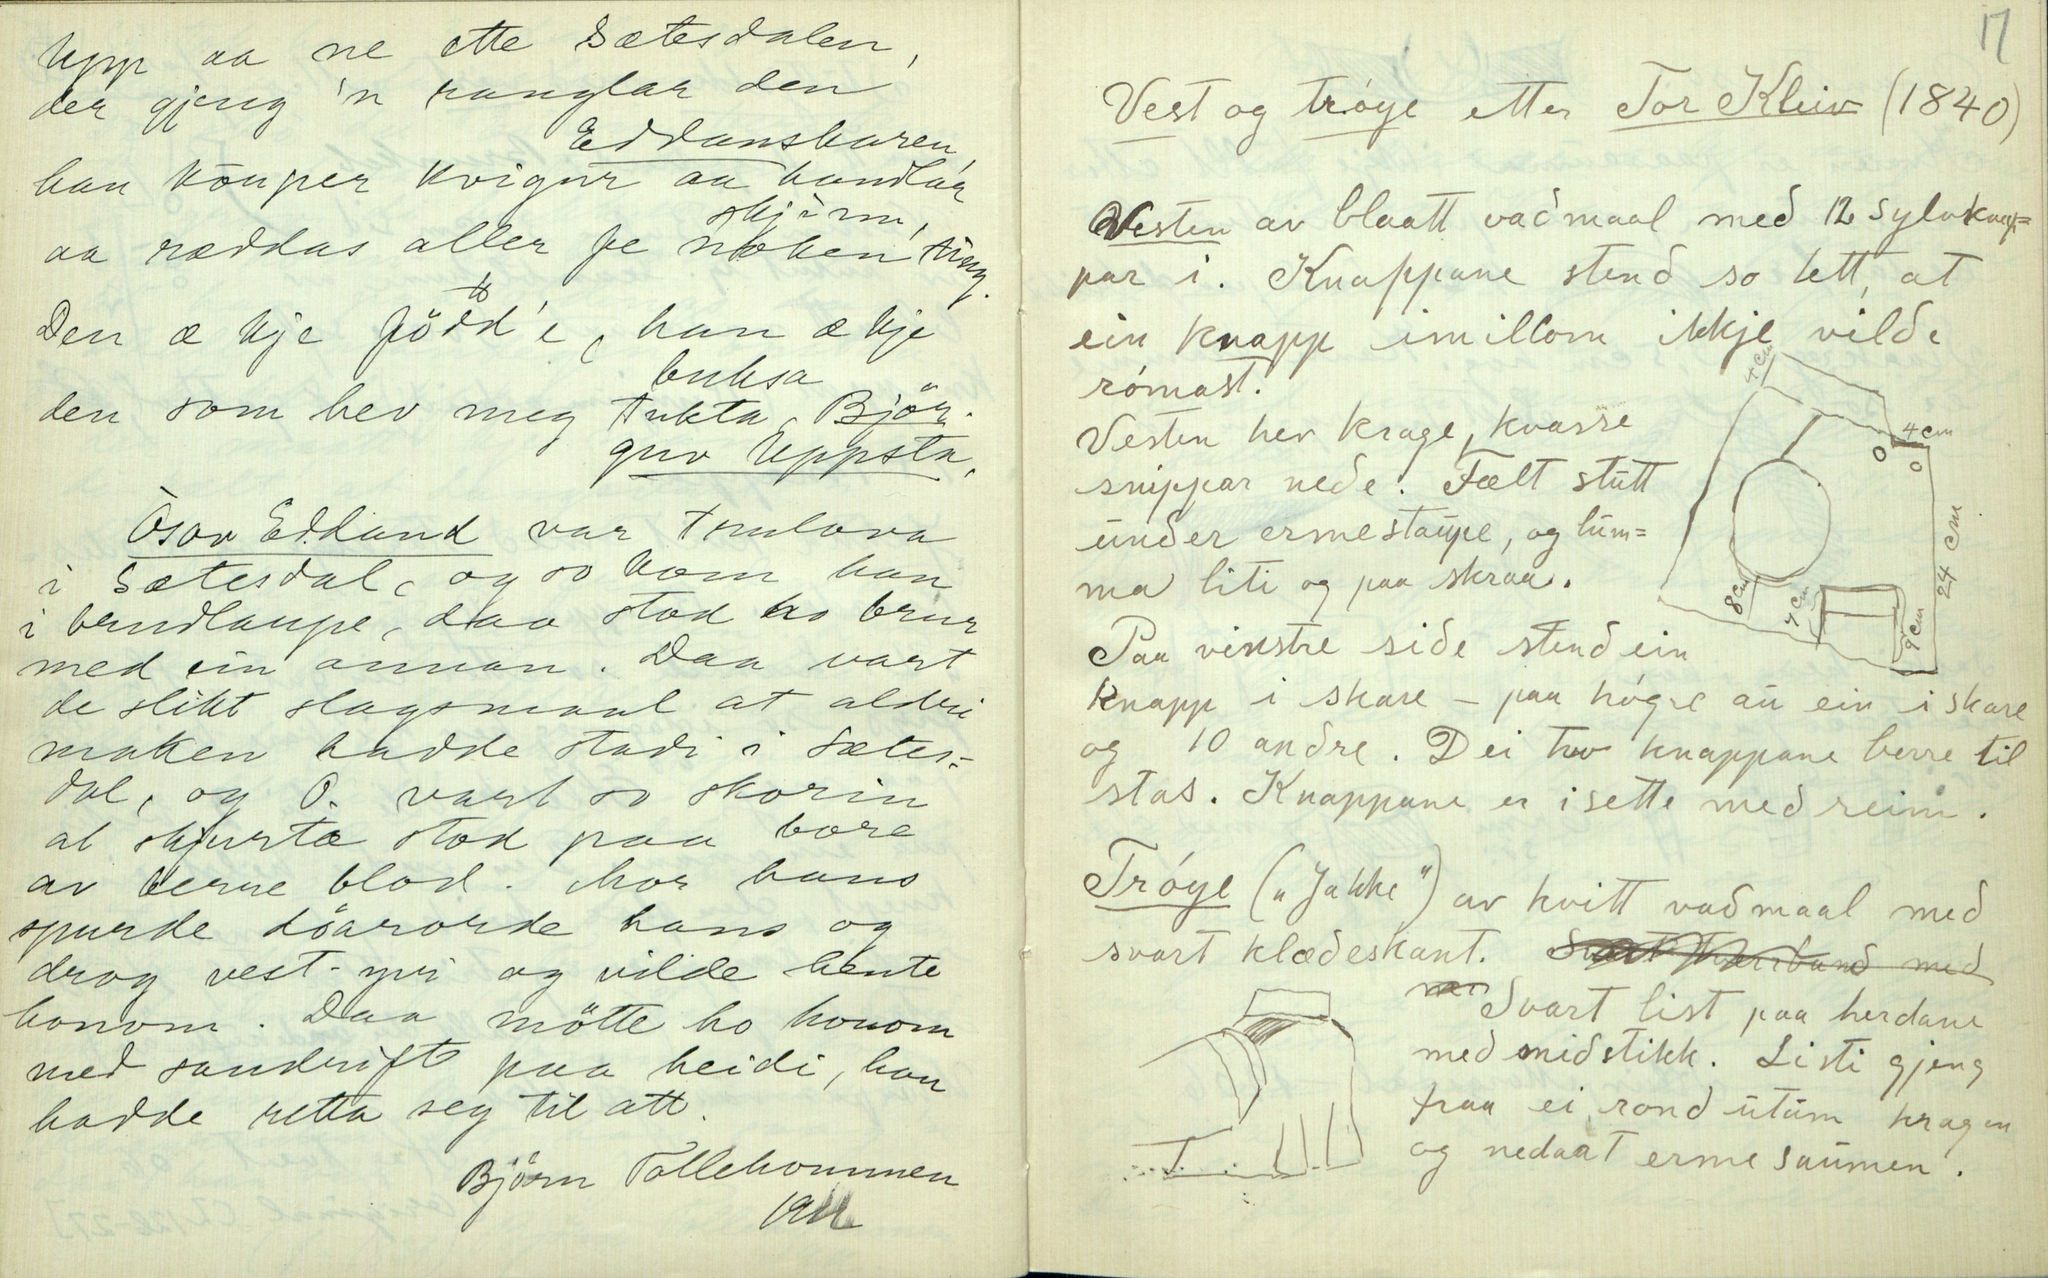 Upp aa ne ette Sætesdalen,
der gjeng 'n ranglar den
Eddansbaren,
han kouper kvigur aa handlar
skjinn,
aa ræddas aller fe noken ting.
Den æ kje född'e, han æ kje
buksa
den som hev meg tukta, Björ-
guv Uppsta.
Òsov Eddand var trulova
i Sætesdal, og so kom han
i brudlaupe, daa stod ho brur
med ein annan. Daa vart
de slikt slagsmaal at aldri
maken hadde stadi i Sætes-
dal, og O. vart so skorin
at skjurta stod paa bore
av berre blod. Mor hans
spurde döarorde hans og
drog vest-yvi og vilde hente
honom. Daa mötte ho honom
med sandrift paa heidi, han
hadde retta seg til att.
Björn Tallehommen
1911
17
Vest og tróye etter Tor Kleiv (1840)
Vesten av blaatt vaðmaal með 12 sylvknap=
par i. Knappane stend so tett, at
ein knapp imillom ikkje vilde
rómast.
Vesten hev krage, kvasse
snippar neðe. Fælt stutt
under ermestaupe, og lum=
ma liti og paa skraa.
Paa vinstre side stend ein
knapp i skare – paa högre au ein i skare
og 10 andre. Dei hev knappane berre til
stas. Knappane er isette með reim.
4 cm
4 cm
24 cm
8 cm
7 cm
9 cm
Tróye („Jakke") av kvitt vaðmaal með
svart klæðeskant. Svart tverrband með
Svart list paa herdane
með miðstikk. Listi gjeng
fraa ei rond utum kragen
og nedaat ermesaumen.